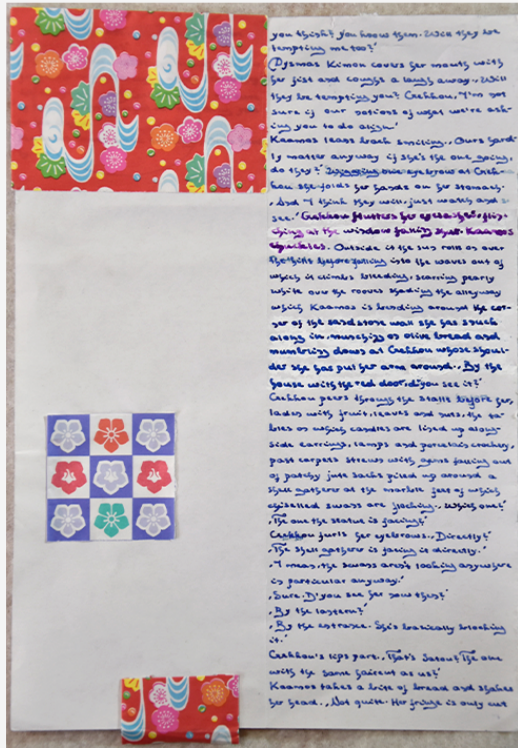 you think? you know them. Will they be
tempting me too?'
Dysmas Kimon covers her mouth with
her fist and coughs a laugh away. ‚Will
they be tempting you? Crehhou, 'I'm not
sure if our notions of what we're ask-
ing you to do align.'
Kaamos leans back smiling. ‚Ours hard-
ly matter anyway if she's the one going,
do they?' one eyebrow at Creh-
hou she folds her hands on her stomach.
‚And I think they will, just watch and
see.' Crehhou flutters her eyelashes, flin-
ching at the window falling shut. Kaamos
chuckles. Outside it the sun rolls on over
the hills before falling into the waves out of
which it climbs bleeding, searing pearly
white over the rooves shading the alleyway
which Kaamos is bending around the cor-
ner of the sandstone wall she has snuck
along in, munching on olive bread and
mumbling down at Crehhou whose shoul-
der she has put her arm around. ‚By the
house with the red door, d'you see it?'
Crehhou peers through the stalls before her,
laden with fruit, leaves and nuts, the ta-
bles on which candles are lined up along-
side earrings, lamps and porcelain crockery,
past carpets strewn with falling out
of patchy jute sacks piled up around a
shell gatherer at the marble feet of which
chiselled swans are flocking. ‚Which one?'
‚The one the statue is facing?'
Crehhou furls her eyebrows. ‚Directly?'
‚The shell gatherer is facing it directly.'
‚I mean, the swans aren't looking anywhere
in particular anyway.'
‚Sure. D'you see her now then?'
‚By the lantern?'
‚By the entrance. She's basically blocking
it.'
Crehhou's lips part. ‚That's ? The one
with the same haircut as us?'
Kaamos takes a bite of bread and shakes
her head. ‚Not quite. Her fringe is only cut